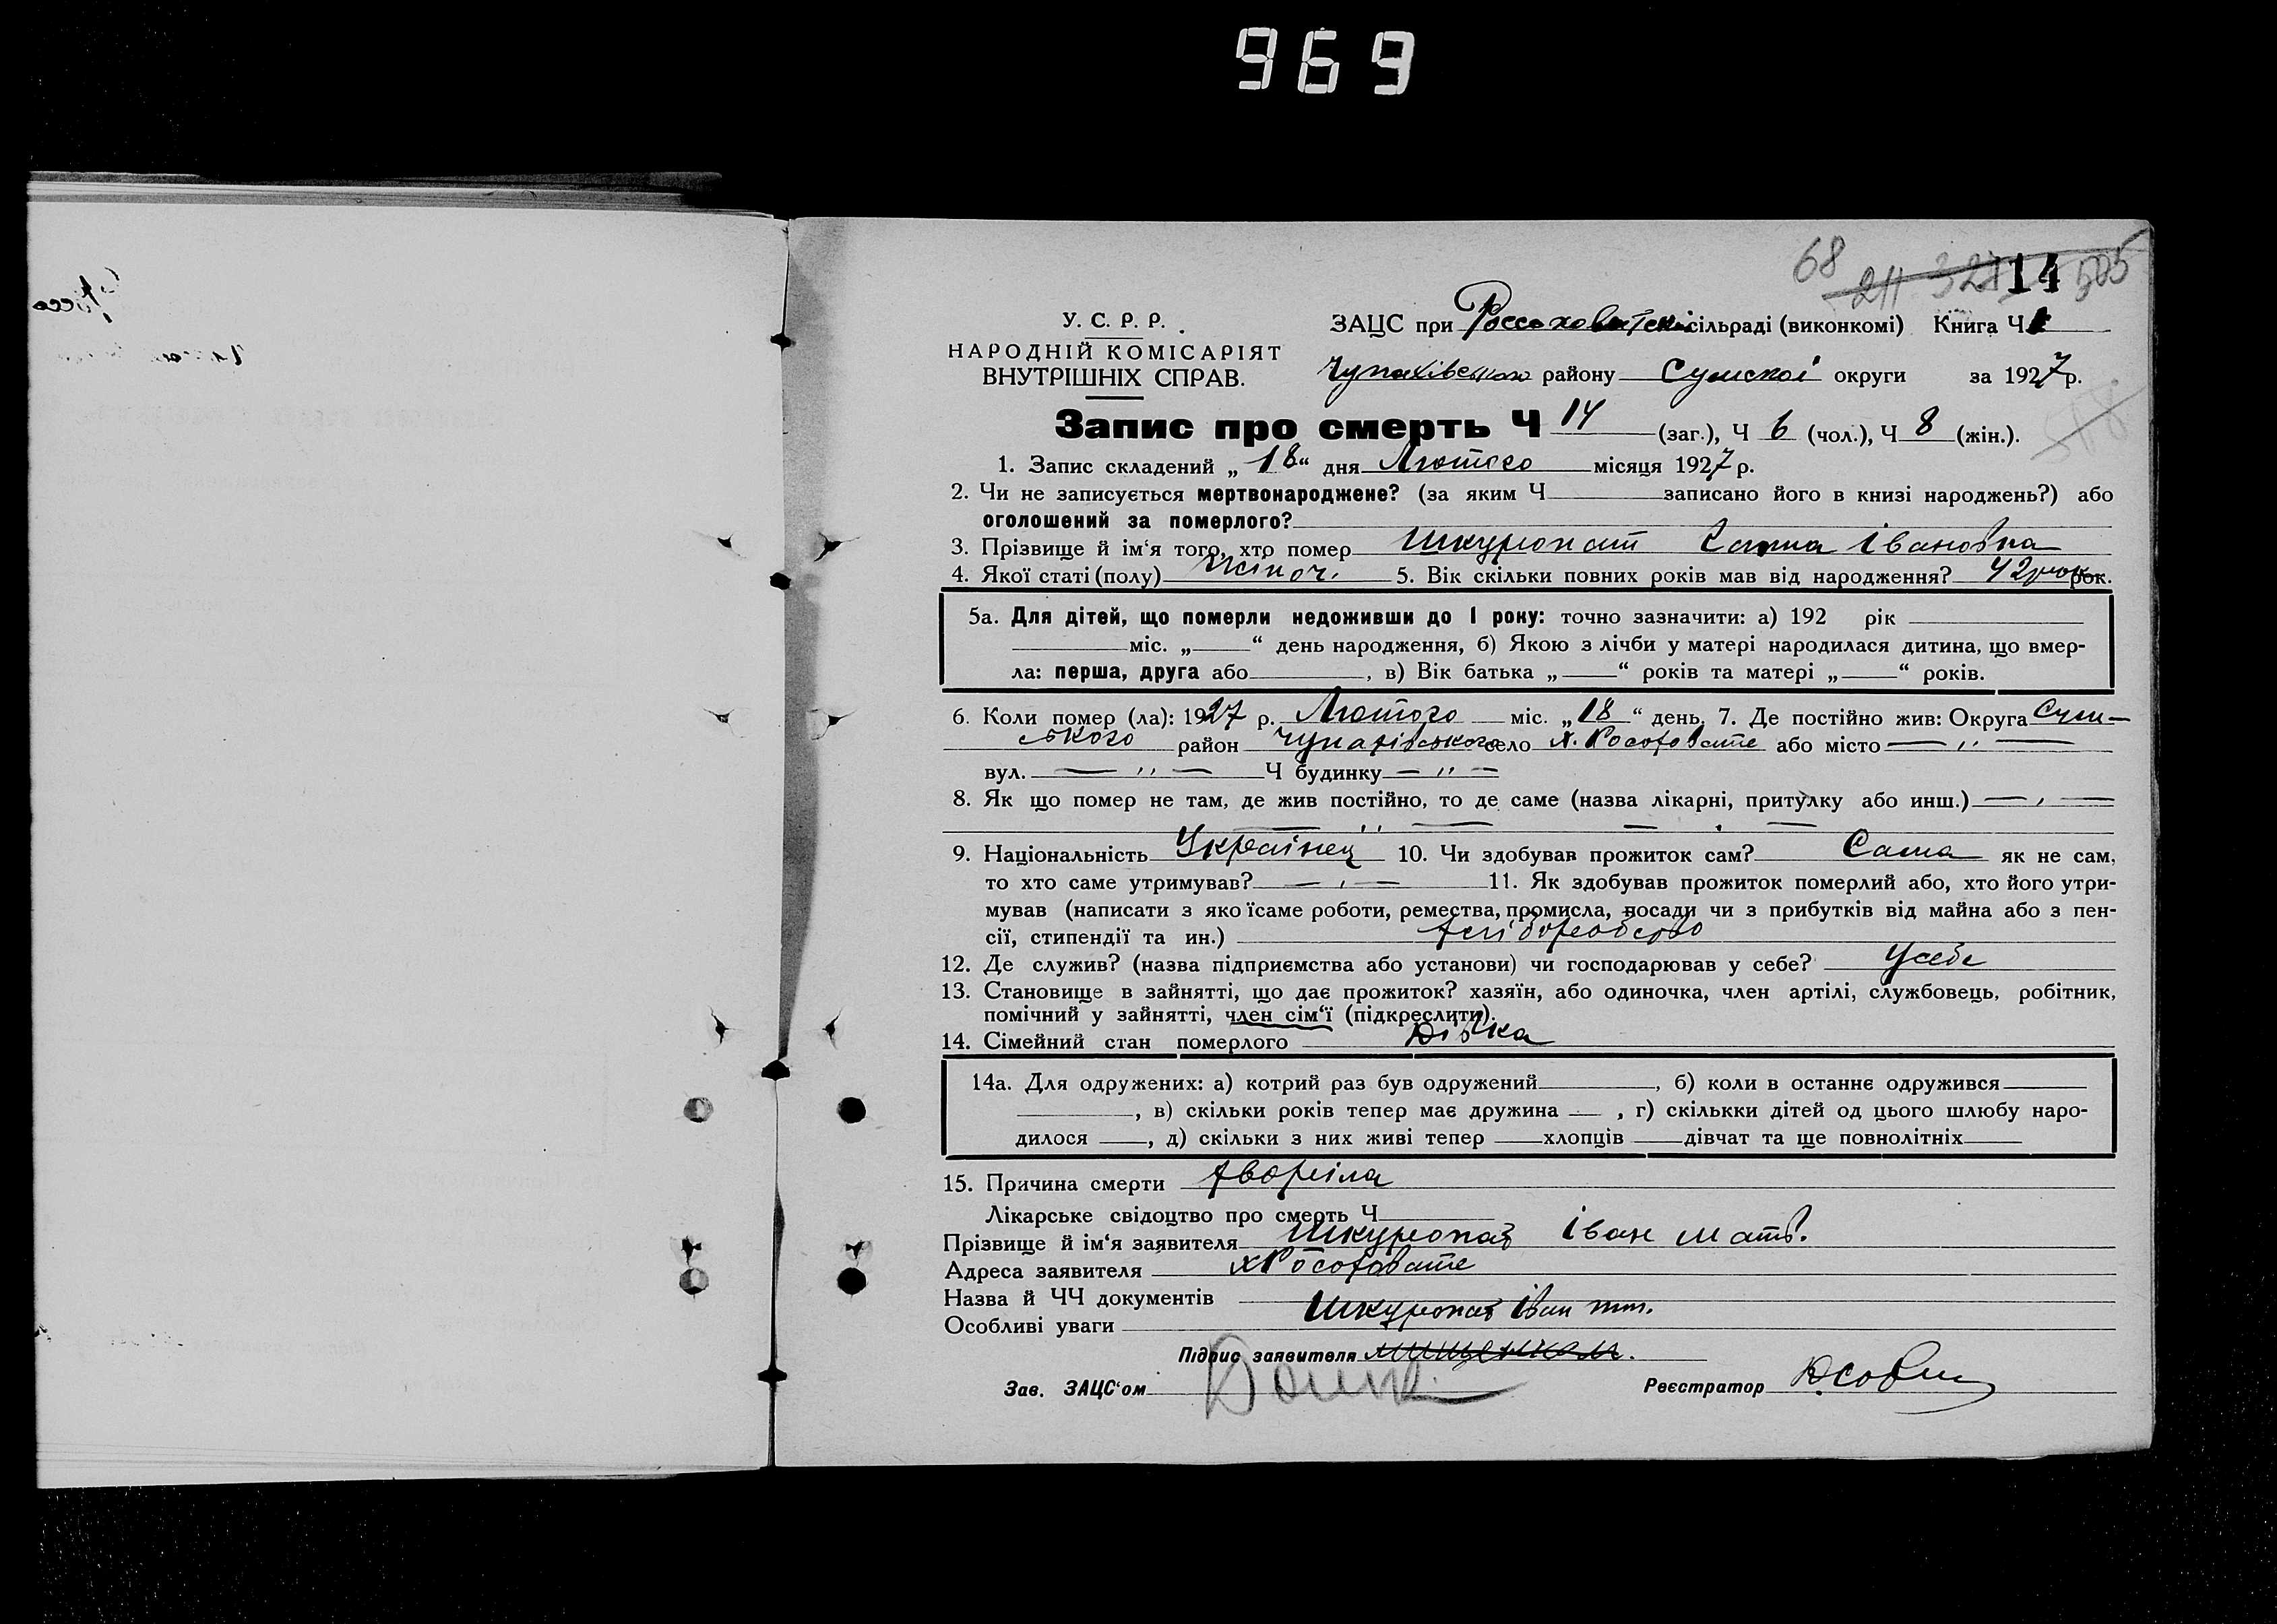 969
68 211 327 14 505
У. С. Р. Р.
НАРОДНІЙ КОМІСАРІЯТ
ВНУТРІШНІХ СПРАВ.
ЗАЦС при Россоховатскі сільраді (виконкомі) Книга Ч 1
Чупахівського району Сумскої округи за 1927 р.
Запис про смерть Ч 14 (заг.), Ч 6 (чол.), Ч 8 (жін.).
1. Запис складений „ 18 “ дня Лютого місяця 1927 р.
2. Чи не записується мертвонароджене? (за яким Ч записано його в книзі народжень?) або
оголошений за померлого?
3. Прізвище й ім‘я того, хто помер Шкуропат Ганна Івановна
4. Якої статі (полу) жіноч. 5. Вік скільки повних років мав від народження? 42 рок.
5а. Для дітей, що померли недоживши до 1 року: точно зазначити: а) 192 рік
міс. „ “ день народження, б) Якою з лічби у матері народилася дитина, що вмер-
ла: перша, друга або , в) Вік батька „ “ років та матері „ “ років.
6. Коли помер (ла): 1927 р. Лютого міс. „ 18 “ день. 7. Де постійно жив: Округа Сум-
ського район Чупахівського село х. Росоховате або місто — „ —
вул. — „ — Ч будинку — „ —
8. Як що помер не там, де жив постійно, то де саме (назва лікарні, притулку або инш.) — „ —
9. Національність Українец 10. Чи здобував прожиток сам? Сама як не сам,
то хто саме утримував? — „ — 11. Як здобував прожиток померлий або, хто його утри-
мував (написати з яко їсаме роботи, ремества, промисла, посади чи з прибутків від майна або з пен-
сії, стипендії та ин.) хліборобство
12. Де служив? (назва підприємства або установи) чи господарював у себе? У себе
13. Становище в зайнятті, що дає прожиток? хазяїн, або одиночка, член артілі, службовець, робітник,
помічний у зайнятті, член сім‘ї (підкреслити).
14. Сімейний стан померлого Дівка
14а. Для одружених: а) котрий раз був одружений , б) коли в останнє одружився
, в) скільки років тепер має дружина , г) скількки дітей од цього шлюбу наро-
дилося , д) скільки з них живі тепер хлопців дівчат та ще повнолітніх
15. Причина смерти хворіла
Лікарське свідоцтво про смерть Ч
Прізвище й ім‘я заявителя Шкуропат Іван Матв.
Адреса заявителя х Росоховате
Назва й ЧЧ документів
Шкуропат Іван
Особливі уваги
Підпис заявителя
Зав. ЗАЦС‘ом
Реєстратор